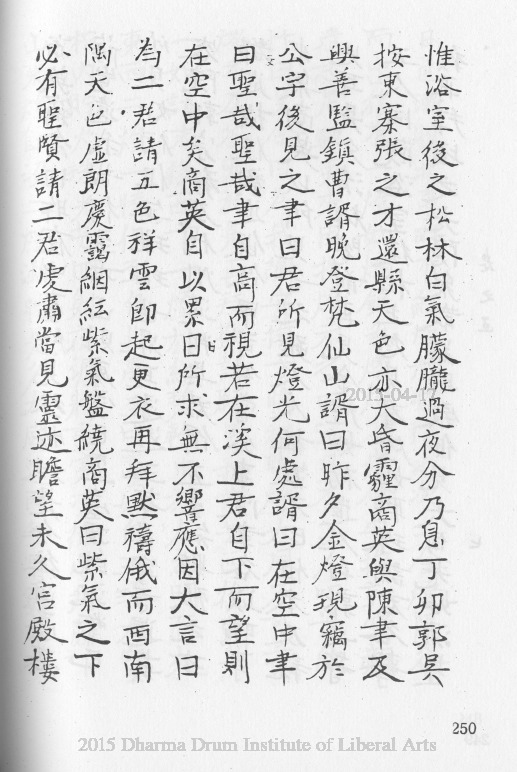 惟浴室後之松林白氣朦朧過夜分乃息丁卯郭吳
按東寨張之才還縣天色亦大昏霾商英與陳聿及
興善監鎮曹諝晚登梵仙山諝曰昨夕金燈現竊於
公字後見之聿曰君所見燈光何處諝曰在空中聿
曰聖哉聖哉聿自高而視若在溪上君自下而望則
在空中矣商英自以累日所求無不響應因大言曰
為二君請五色祥雲即起更衣再拜默禱俄而西南
隅天色虛朗慶靄絪縕紫氣盤繞商英曰紫氣之下
必有聖賢請二君虔肅當見靈迹瞻望未久宮殿樓
250
2013-04-17
2015 Dharma Drum Institute of Liberal Arts